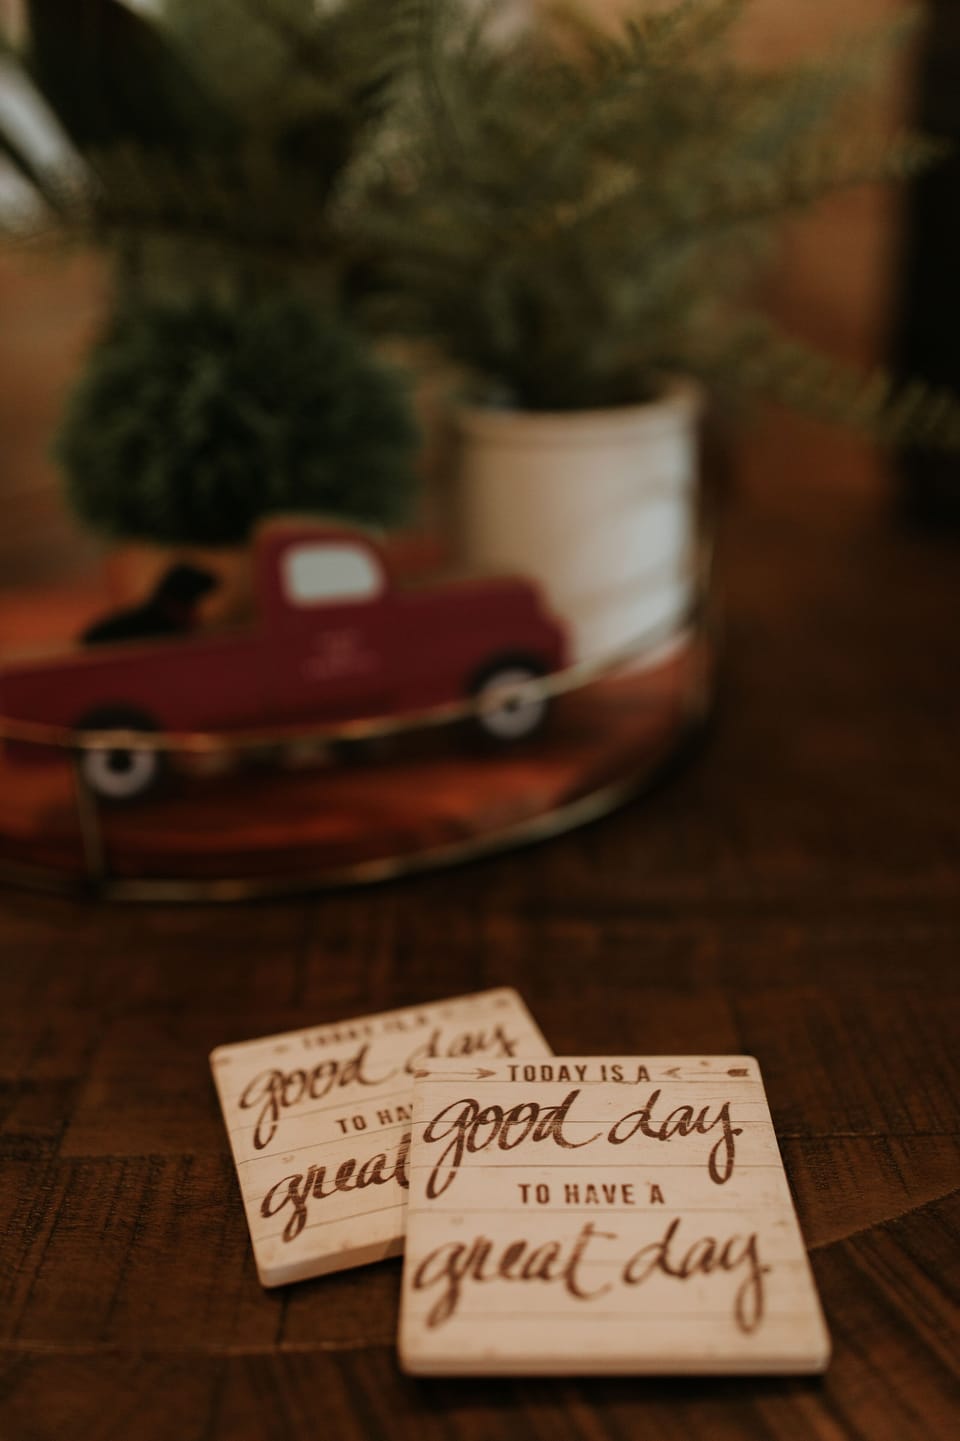 TODAY IS A
good day
TO HAVE A
great day
TODAY IS A
good day
TO HA
great